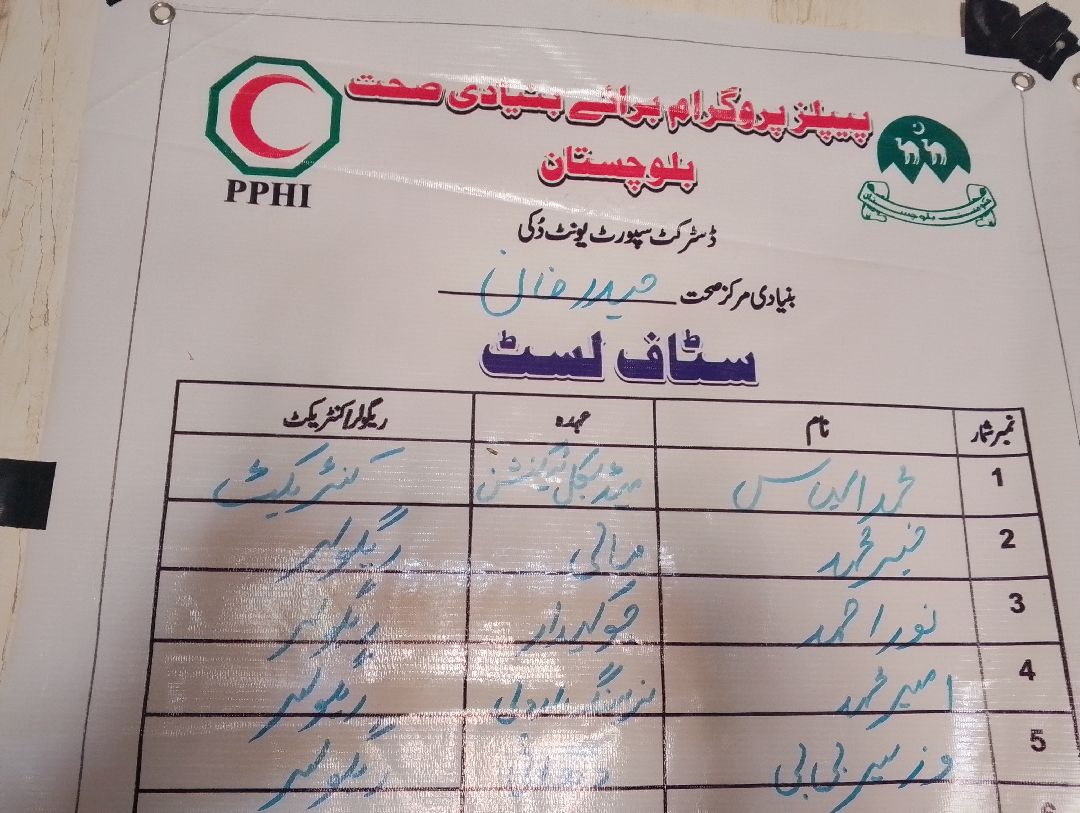 پیپلز پروگرام برائے بنیادی صحت
بلوچستان
PPHI
حکومت بلوچستان
ڈسٹرکٹ سپورٹ یونٹ دُکی
بنیادی مرکز صحت حیدر خان
سٹاف لسٹ
نمبر شمار نام عہدہ ریگولر/کنٹریکٹ
1 محمد الیاس میڈیکل ٹیکنیشن کنٹریکٹ
2 خیر محمد مالی ریگولر
3 نور احمد چوکیدار ریگولر
4 امیر محمد نرسنگ اردلی ریگولر
5 وزیر بی بی ریگولر
6